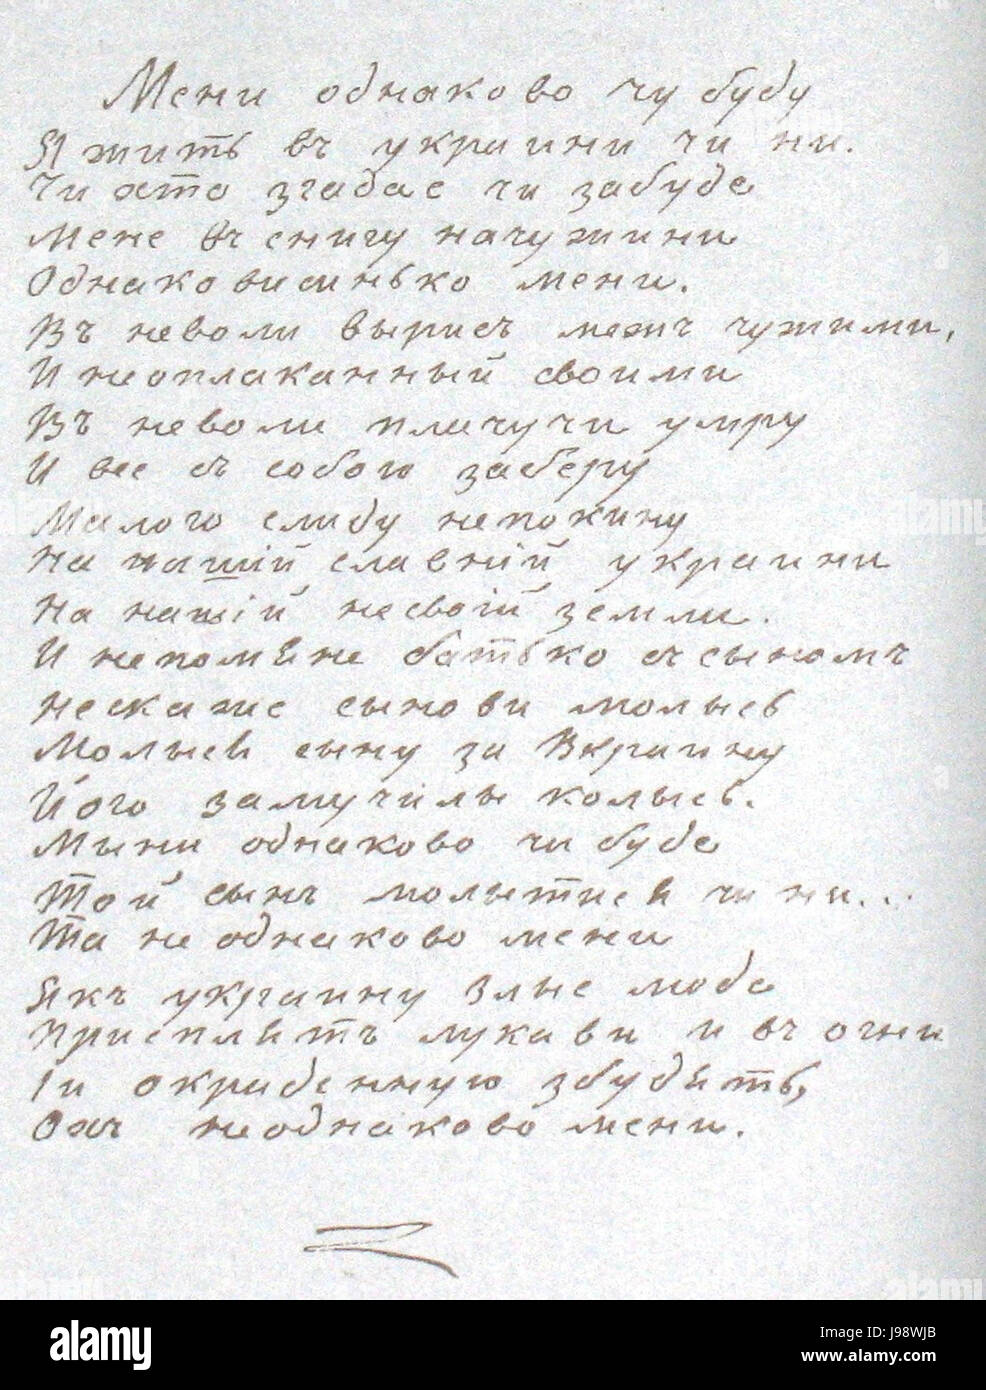 Мени однаково чи буду
Я жить въ украини чи ни.
Чи хто згадае чи забуде
Мене въ снигу начужини
Однаковисинько мени.
Въ неволи вырисъ межъ чужими,
И неоплаканный своими
Въ неволи плачучи умру
И все съ собою заберу
Малого слиду непокину
На нашій славній украини
На нашій несвоій земли.
И непомъяне батько съ сыномъ
нескаже сынови молысь
Молысь сыну за Вкраину
Його замучилы колысь.
Мыни однаково чи буде
Той сынъ молытись чи ни...
Та не однаково мени
Якъ украину злые люде
Присплять лукави и въ огни
Іи окраденную збудять,
Охъ неоднаково мени.
alamy
Image ID: J98WJB
www.alamy.com